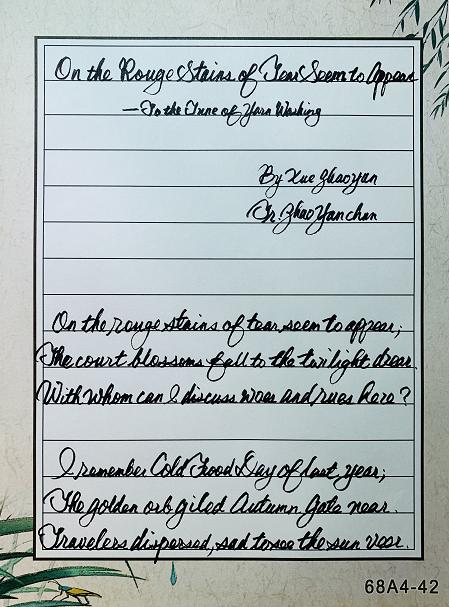 On the Rouge Stains of Tear Seem to Appear
—To the Tune of Yarn Washing
By Xue Zhaoyan
Tr. Zhao Yanchun
On the rouge stains of tear seem to appear;
The court blossoms fall to the twilight drear.
With whom can I discuss woes and rues here?
I remember Cold Food Day of last year;
The golden orb giled Autumn Gate near.
Travelers dispersed, sad to see the sun veer.
68A4-42